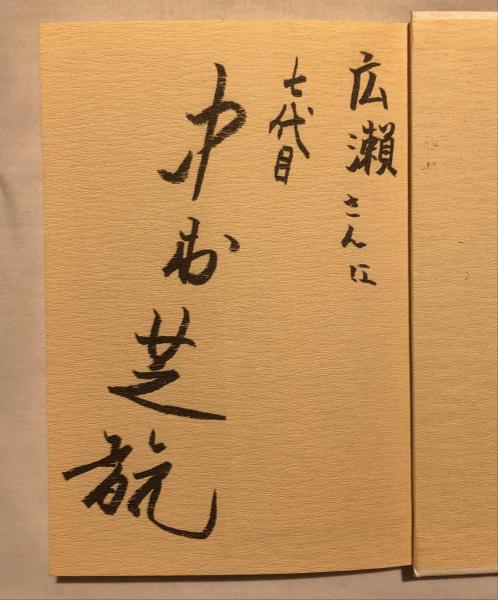 広瀬さん江
七代目
中村芝翫